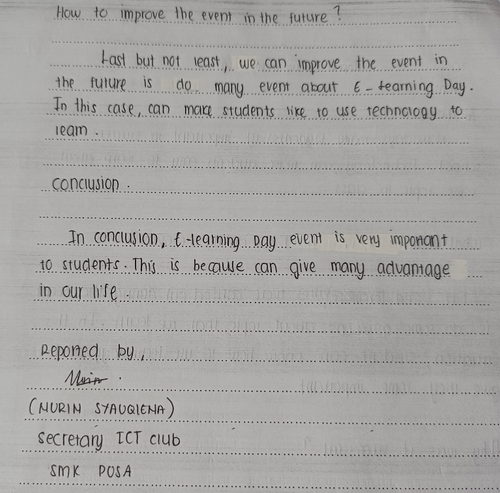 How to improve the event in the future?
Last but not least, we can improve the event in
the future is do many event about E-Learning Day.
In this case, can make students like to use technology to
learn.
Conclusion.
In conclusion, E-learning Day event is very important
to students. This is because can give many advantage
in our life.
Reported by,
Nurin.
(NURIN SYAUQIENA)
Secretary ICT Club
SMK POSA